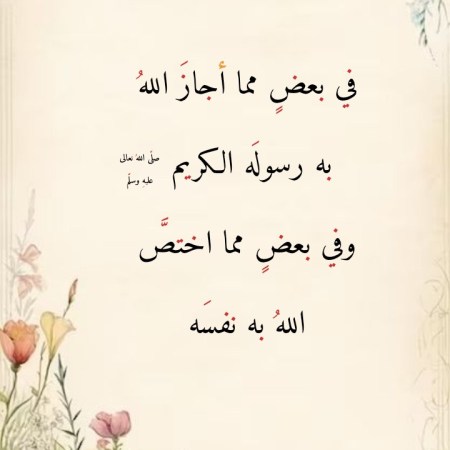 في بعضٍ مما أجازَ اللهُ
به رسولَه الكريم صلّى الله تعالى عليه وسلّم
وفي بعضٍ مما اختصَّ
اللهُ به نفسَه